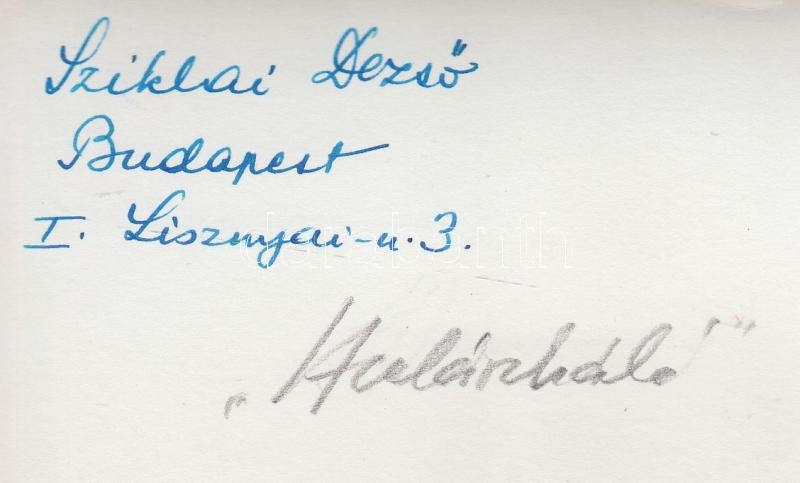 Sziklai Dezső
Budapest
I. Lisznyai-u. 3.
darabanth
„Hullámháló”